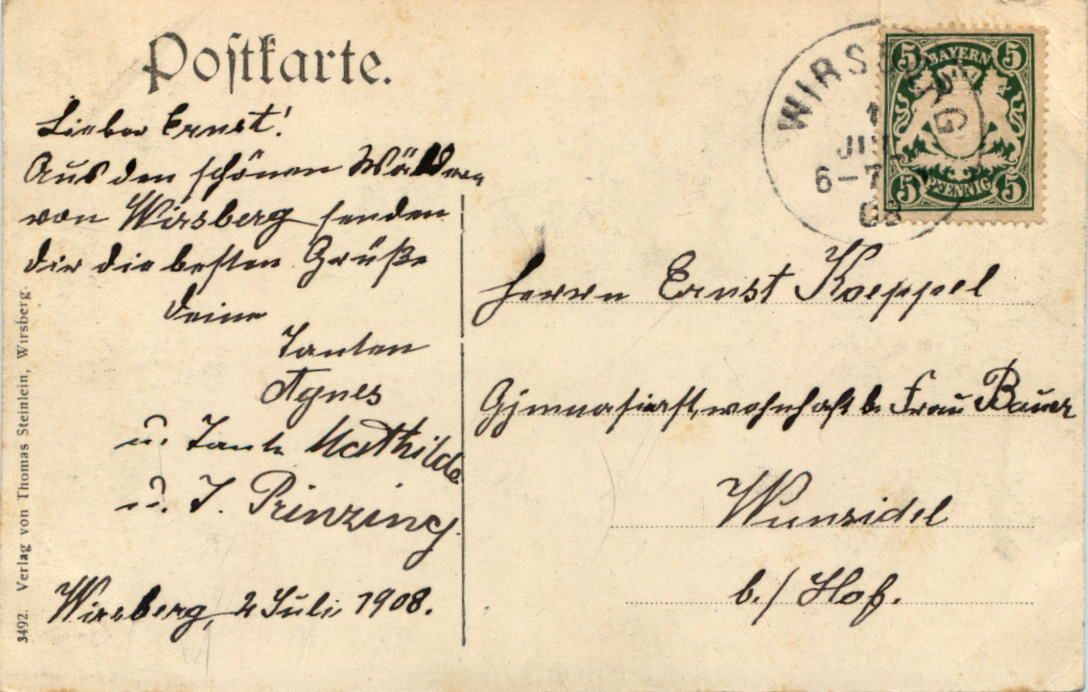 Postkarte.
Lieber Ernst!
Aus den schönen Wäldern
von Wirsberg senden
dir die besten Grüße
deine
Tanten
Agnes
u. Tante Mathilde
u. J. Prinzing.
Wirsberg, 2 Juli 1908.
3492. Verlag von Thomas Steinlein, Wirsberg.
WIRSBERG
6-7
08
5 BAYERN 5
5 PFENNIG 5
Herrn Ernst Koeppel
Gymnasiast, wohnhaft b. Frau Bauer
Wunsidel
b./ Hof.